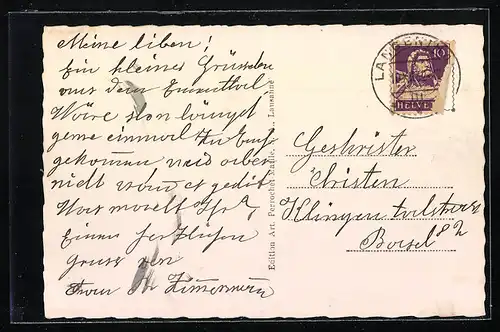 Meine liben!
Ein kleines Grüsslein
aus dem Emmenthal
Wäre schon längst
gerne einmal zu Euch
gekommen weis aber
nicht wenn es
Was macht Ihr?
Einen herzlichen
gruss von
Frau Zimmermann
Edition Art. Perrochet Matile, Lausanne
10
HELVETIA
Geschwister
Christen
Klingentalstrasse
82
Basel